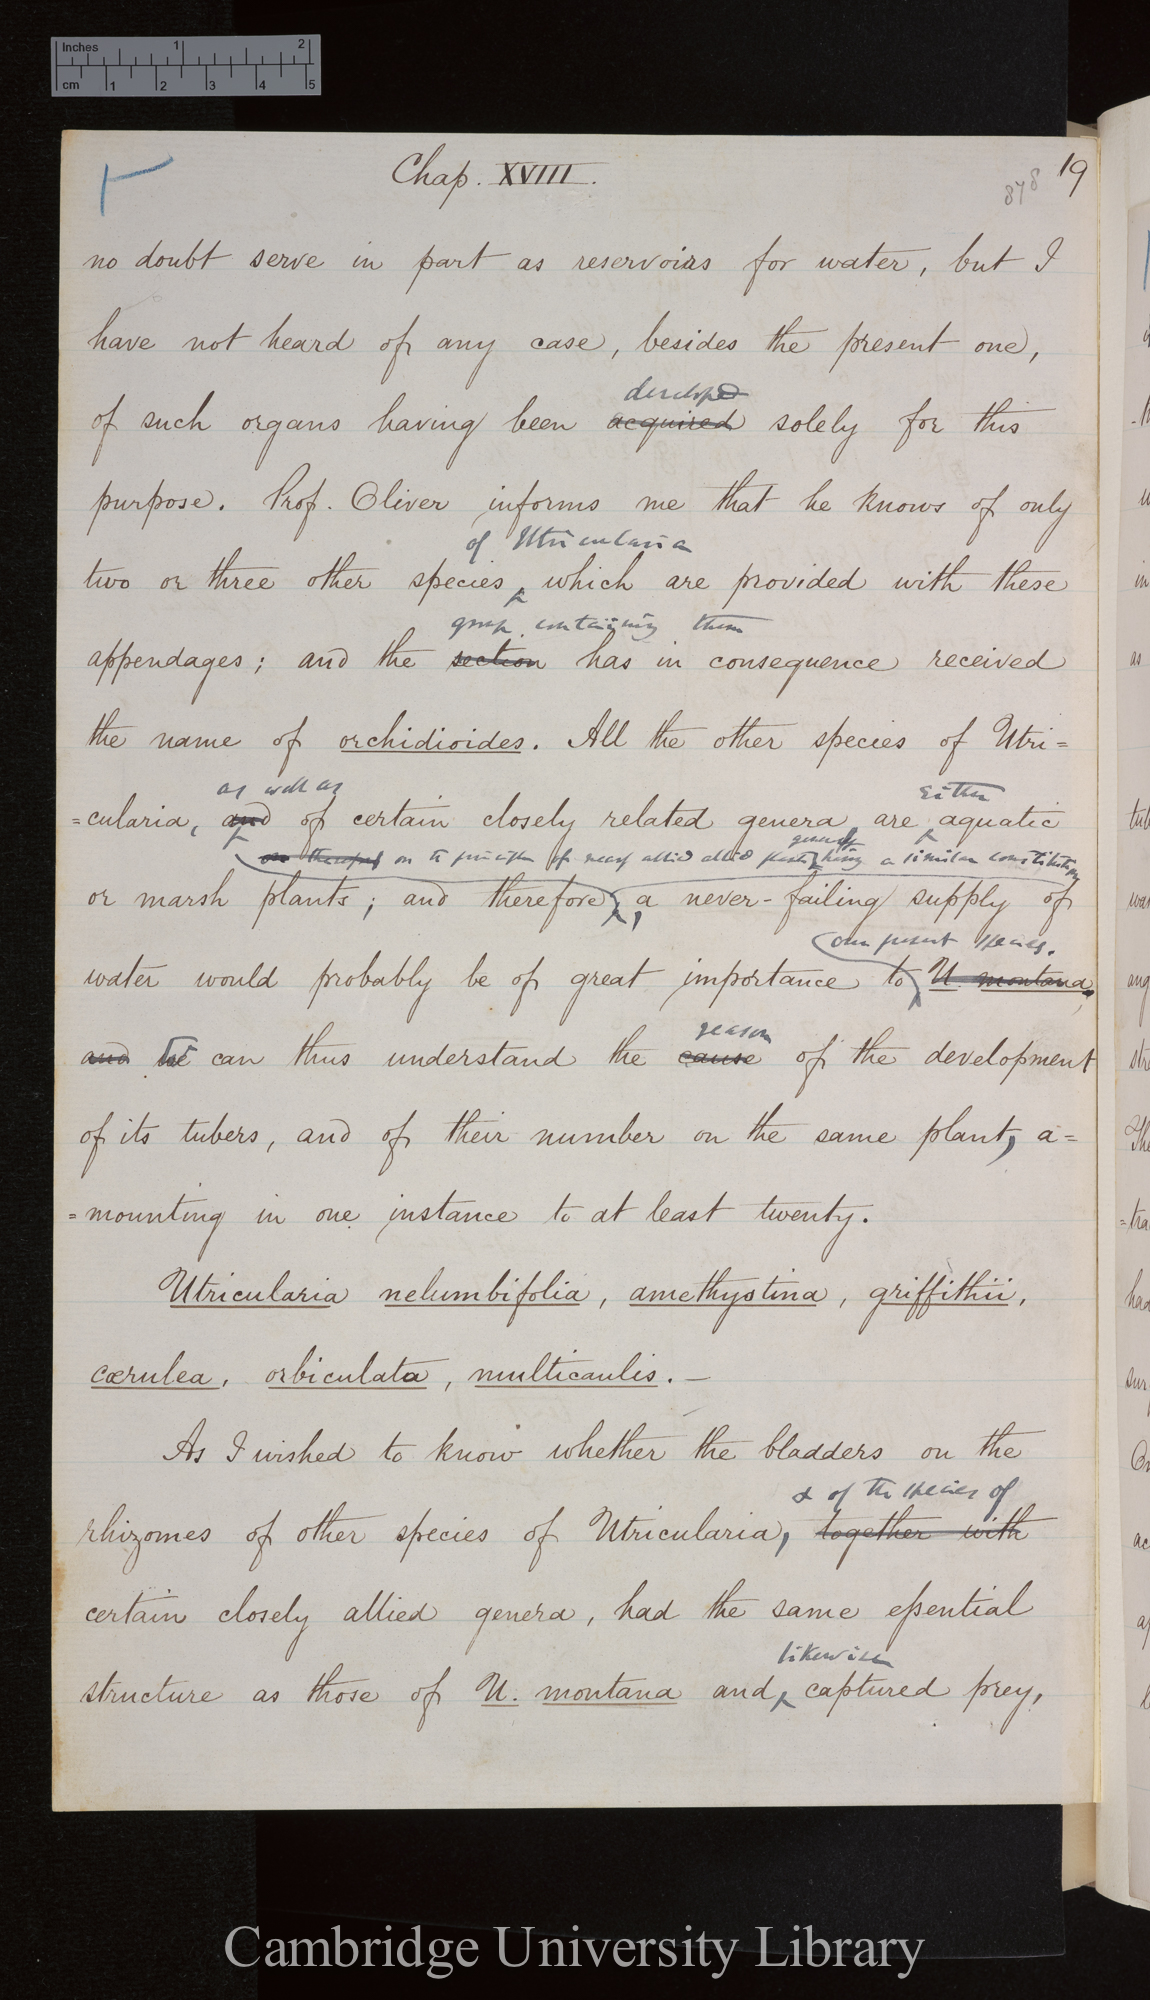 Inches 1 2
cm 1 2 3 4 5
Chap. XVIII.
878
19
no doubt serve in part as reservoirs for water, but I
have not heard of any case, besides the present one,
developed
of such organs having been acquired solely for this
purpose. Prof. Oliver informs me that he knows of only
of Utricularia
two or three other species which are provided with these
group containing them
appendages; and the section has in consequence received
the name of orchidioides. All the other species of Utri=
as well as either
=cularia, and of certain closely related genera are aquatic
on therefore on the principle of nearly allied allied plants generally having a similar constitution
or marsh plants; and therefore, a never-failing supply of
our present species.
water would probably be of great importance to U montana,
reason
and We can thus understand the cause of the development
of its tubers, and of their number on the same plant, a=
=mounting in one instance to at least twenty.
Utricularia nelumbifolia, amethystina, griffithii,
cœrulea, orbiculata, multicaulis. —
As I wished to know whether the bladders on the
& of the species of
rhizomes of other species of Utricularia, together with
certain closely allied genera, had the same essential
likewise
structure as those of U. montana and captured prey,
Cambridge University Library